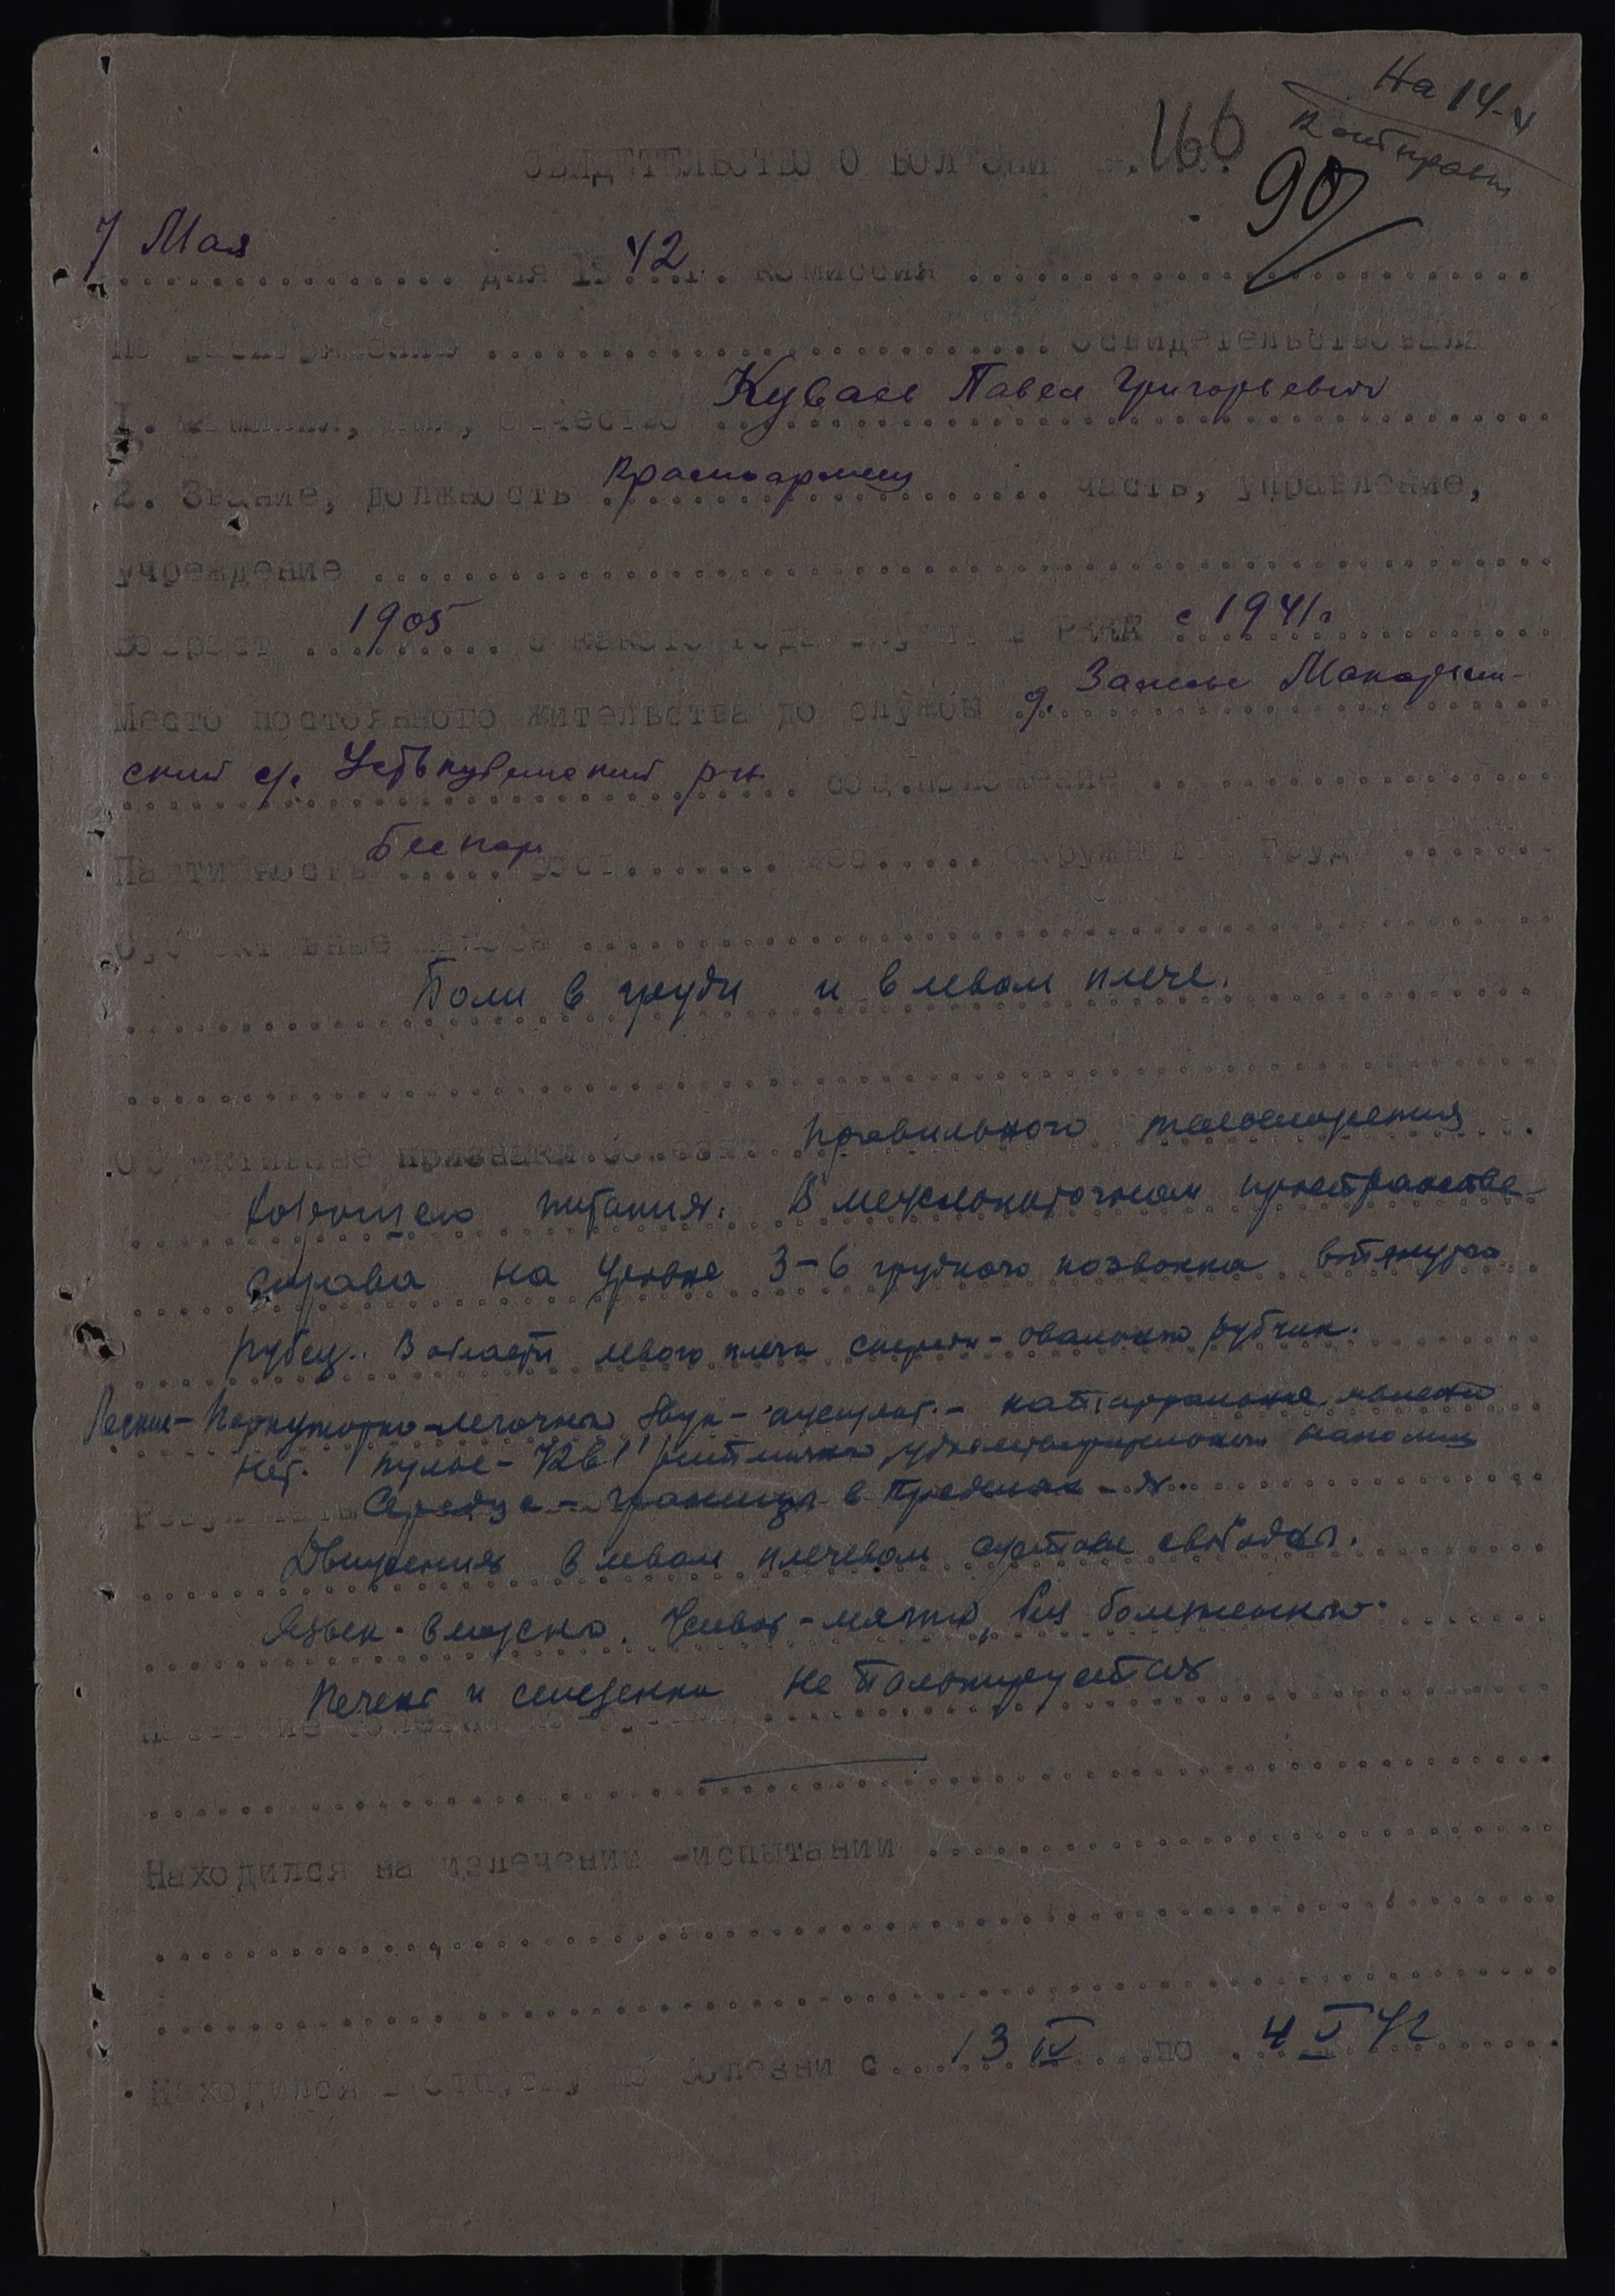 На 14-V
СВИДЕТЕЛЬСТВО О БОЛЕЗНИ №. 160
90
7 Мая дня 1942 г. комиссия
по распоряжению освидетельствовала
1. Фамилия, имя, отчество Куваев Павел Григорьевич
2. Звание, должность красноармеец часть, управление,
учреждение
Возраст 1905 с какого года служит в РККА с 1941г
Место постоянного жительства до службы д. Заполье
ский с/с Устькубинский р-н соц.положение
Партийность Беспар рост вес окружность груди
Субъективные жалобы
Боли в груди и в левом плече.
Объективные признаки болезни Правильного телосложения
хорошего питания. В межлопаточном пространстве
справа на уровне 3-6 грудного позвонка втянутый
рубец. В области левого плеча спереди - овальный рубчик.
Легкие - Перкуторно-легочный звук - аускульт. - катарральных явлений
нет. Пульс - 72 в 1' ритмичный, удовлетворительного наполнения
Сердце - границы в пределах - N.
Движения в левом плечевом суставе свободны.
Язык - влажно. Живот - мягкий, без болезненный.
Печень и селезенка не пальпируется
Название болезни
Находился на излечении -испытании
Находился в отпуску по болезни с 13 IV по 4 V 42